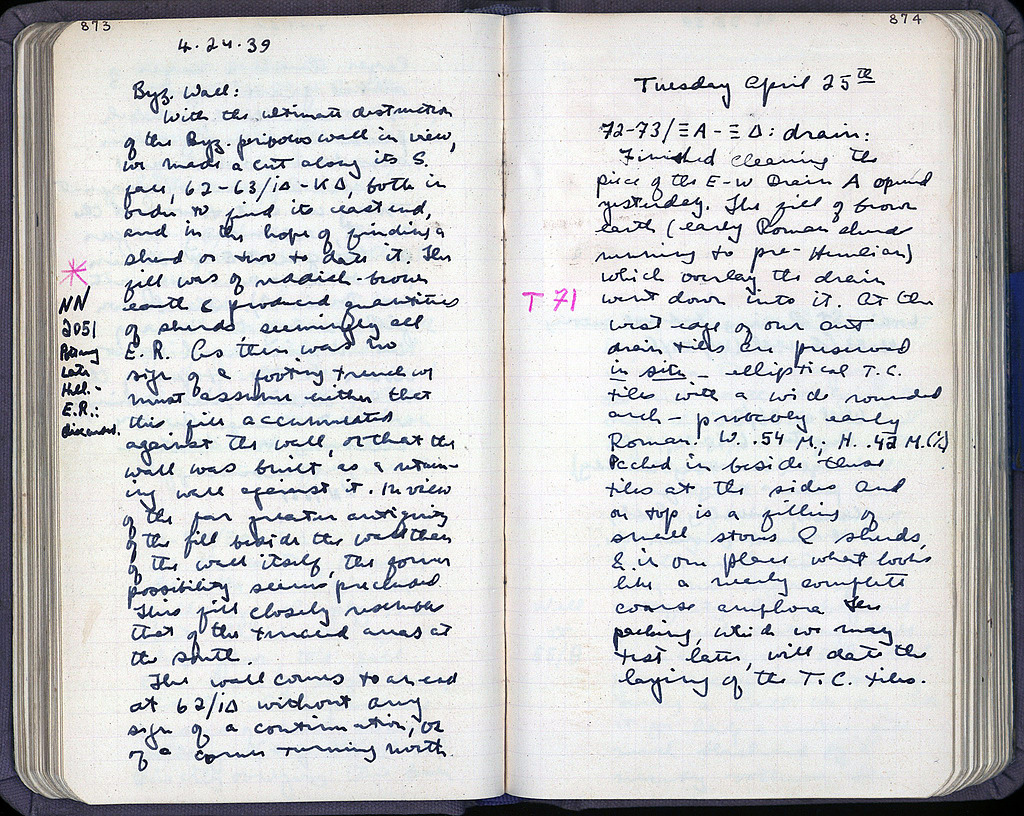 873
4.24.39
Byz. Wall:
With the ultimate destruction
of the Byz. peribolos wall in view,
we made a cut along its S.
face, 62-63/ΙΔ-ΚΔ, both in
order to find its east end,
and in the hope of finding a
sherd or two to date it. The
fill was of reddish-brown
earth & produced quantities
of sherds seemingly all
E.R. As there was no
sign of a footing trench we
must assume either that
this fill accumulated
against the wall, or that the
wall was built as a retain-
ing wall against it. In view
of the far greater antiquity
of the fill beside the wall than
of the wall itself, the former
possibility seems precluded
This fill closely resembles
that of the terraced areas at
the south.
The wall comes to an end
at 62/ΙΔ without any
sign of a continuation, or
of a corner turning north
*
NN
2051
Pottery
Late
Hell.-
E.R.:
discarded.
874
Tuesday April 25th
72-73/ΞΑ-ΞΔ: drain:
Finished cleaning the
piece of the E-W Drain A opened
yesterday. The fill of brown
earth (early Roman sherds
running to pre-Herulian)
which overlay the drain
went down into it. At the
west edge of our cut
drain tiles are preserved
in situ - elliptical T.C.
tiles with a wide rounded
arch - probably early
Roman. W. .54 M.; H. .42 M.(½)
Packed in beside these
tiles at the sides and
on top is a filling of
small stones & sherds,
& in one place what looks
like a nearly complete
coarse amphora. The
packing, which we may
test later, will date the
laying of the T.C. tiles.
T 71